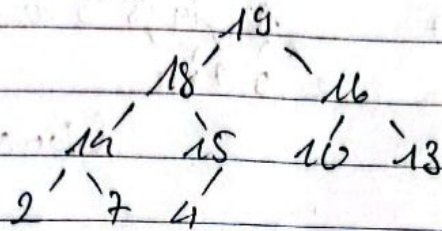 19
18 16
14 15 10 13
2 7 4